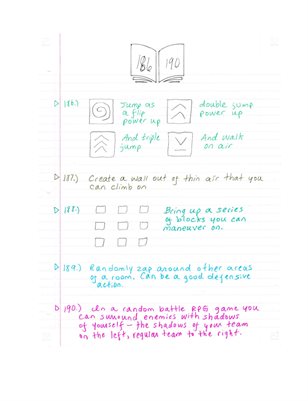 186 190
186.) Jump as a flip power up
double jump power up
And triple jump
And walk on air
187.) Create a wall out of thin air that you
can climb on
188.) Bring up a series
of blocks you can
maneuver on.
189.) Randomly zap around other areas
of a room. Can be a good defensive
action.
190.) In a random battle RPG game you
can surround enemies with shadows
of yourself - the shadows of your team
on the left, regular team to the right.